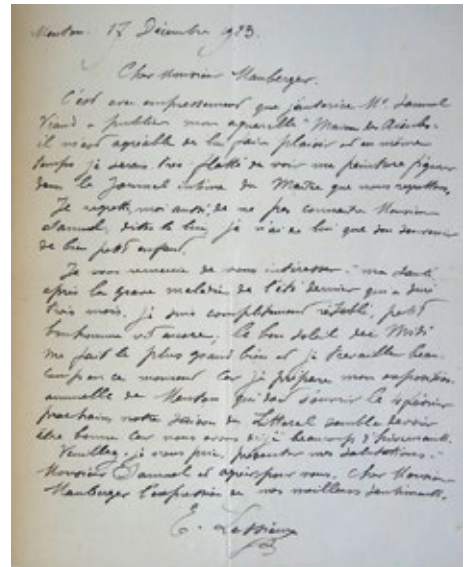 Menton 17 Décembre 1923.
Cher Monsieur Mauberger.
C'est avec empressement que j'autorise Mr. Samuel
Viaud a publier mon aquarelle "Maison des Aïeules"
il m'est agréable de lui faire plaisir et en même
temps je serais très flatté de voir ma peinture figurer
dans le Journal intime du Maître que nous regrettons.
Je regrette, moi aussi, de ne pas connaitre Monsieur
Samuel, dites le lui, je n'ai de lui que son souvenir
de bien petit enfant.
Je vous remercie de vous intéresser à ma santé
après la grave maladie de l'été dernier qui a duré
trois mois, je suis complètement rétabli, petit
bonhomme vit encore, le bon soleil du Midi
me fait le plus grand bien et je travaille beau-
coup en ce moment car je prépare mon exposition
annuelle de Menton qui doit s'ouvrir le février
prochain, notre saison du Littoral semble devoir
être bonne car nous avons déjà beaucoup d'hivernants.
Veuillez, je vous prie, présenter mes salutations à
Monsieur Samuel et agréez pour vous, cher Monsieur
Mauberger l'expression de mes meilleurs sentiments.
E. Lessieux